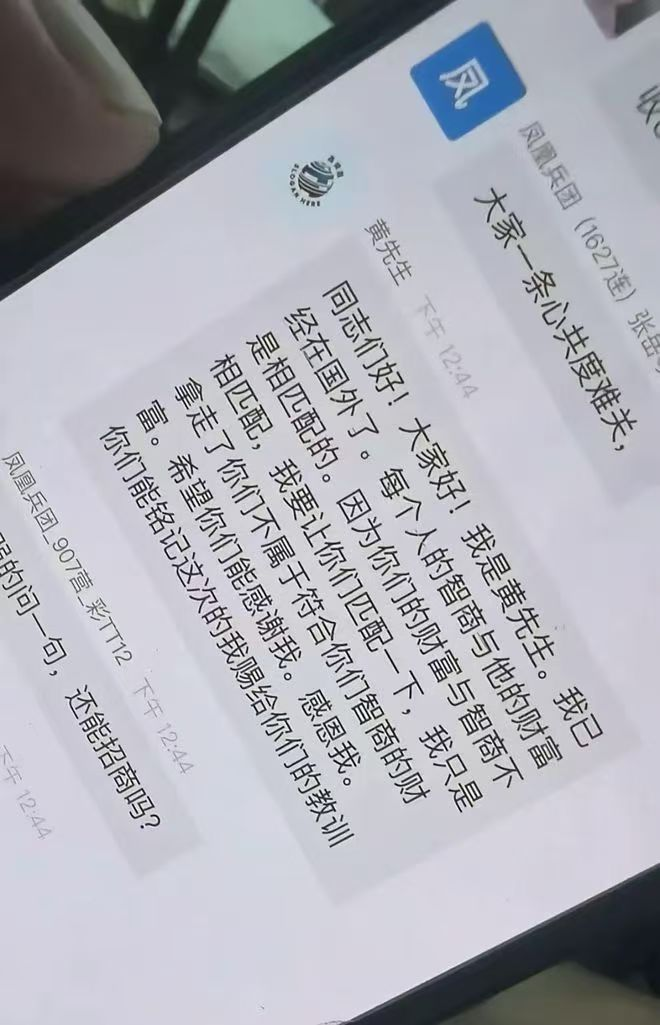 收
凤
凤凰兵团（1627连）张岳
大家一条心共度难关，
SLOGAN HERE
黄先生 下午 12:44
同志们好！大家好！我是黄先生。我已
经在国外了。每个人的智商与他的财富
是相匹配的。因为你们的财富与智商不
相匹配，我要让你们匹配一下，我只是
拿走了你们不属于符合你们智商的财
富。希望你们能感谢我。感恩我。
你们能铭记这次的我赐给你们的教训
凤凰兵团_907营_彩TT12 下午 12:44
的问一句，还能招商吗？
下午 12:44